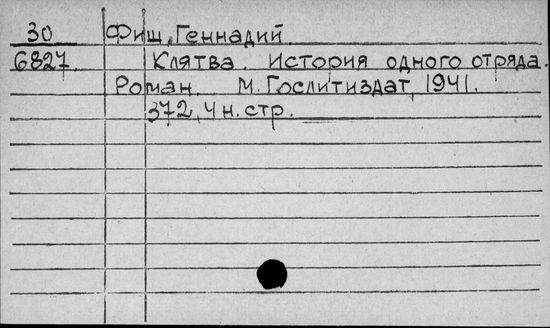 30 Фиш, Геннадий
6827. Клятва. История одного отряда.
Роман. М. Гослитиздат, 1941.
372, 4 н. стр.